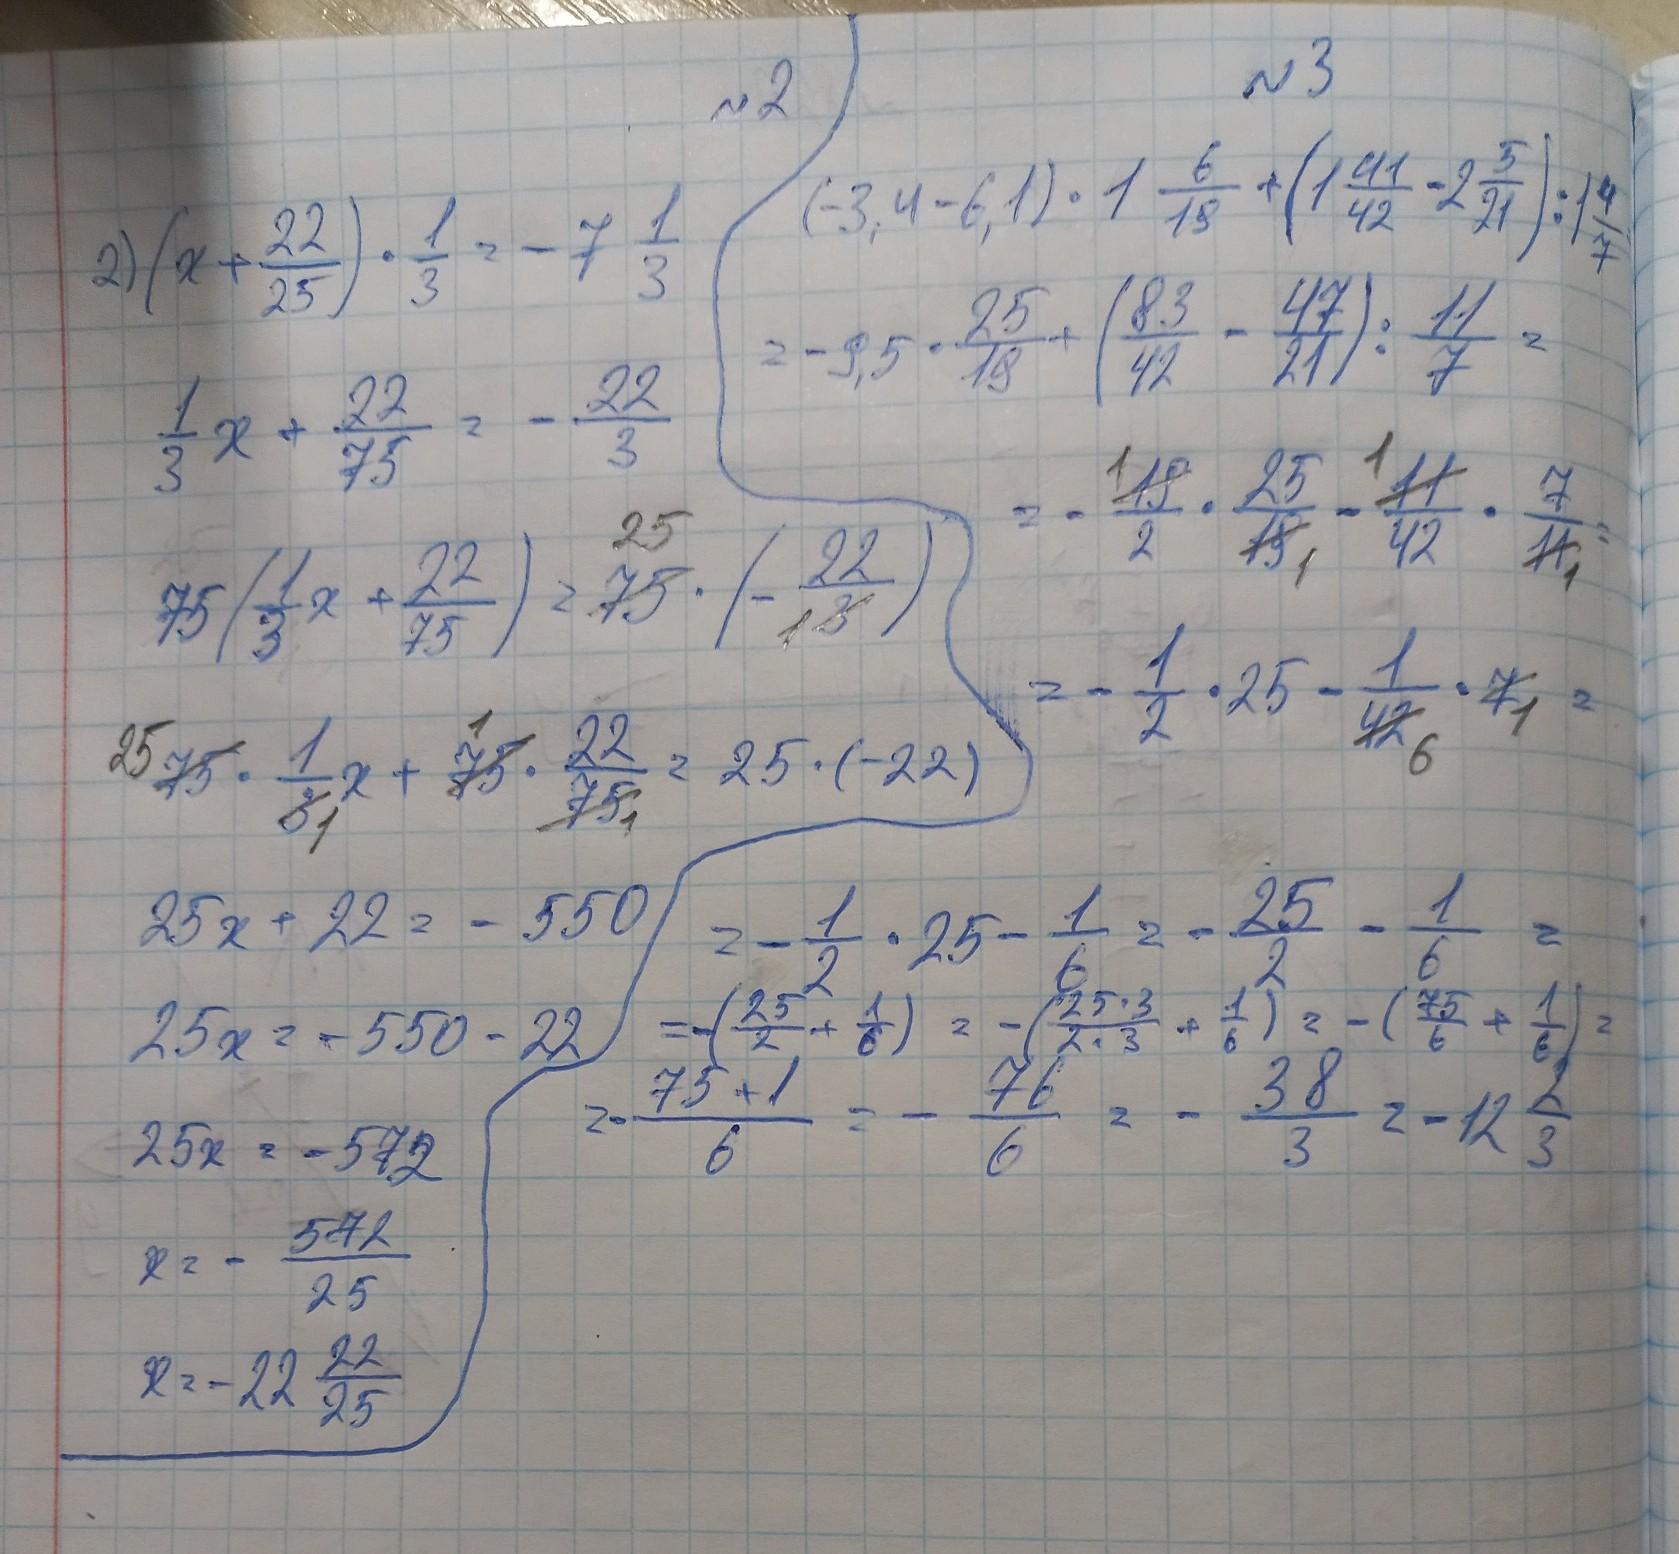 №2
2) (x + 22/25) · 1/3 = - 7 1/3
1/3 x + 22/75 = - 22/3
75 (1/3 x + 22/75) = 75 25 · (- 22/3 1)
25 75 · 1/3 1 x + 1 75 · 22/75 1 = 25 · (-22)
25x + 22 = - 550
25x = - 550 - 22
25x = - 572
x = - 572/25
x = - 22 22/25
№3
(-3,4 - 6,1) · 1 6/19 + (1 41/42 - 2 5/21) : 1 4/7
= - 9,5 · 25/19 + (83/42 - 47/21) : 11/7 =
= - 1 19/2 · 25/19 1 - 1 11/42 · 7/11 1 =
= - 1/2 · 25 - 1/42 6 · 7 1 =
= - 1/2 · 25 - 1/6 = - 25/2 - 1/6 =
= - (25/2 + 1/6) = - (25·3/2·3 + 1/6) = - (75/6 + 1/6) =
= - 75+1/6 = - 76/6 = - 38/3 = - 12 2/3